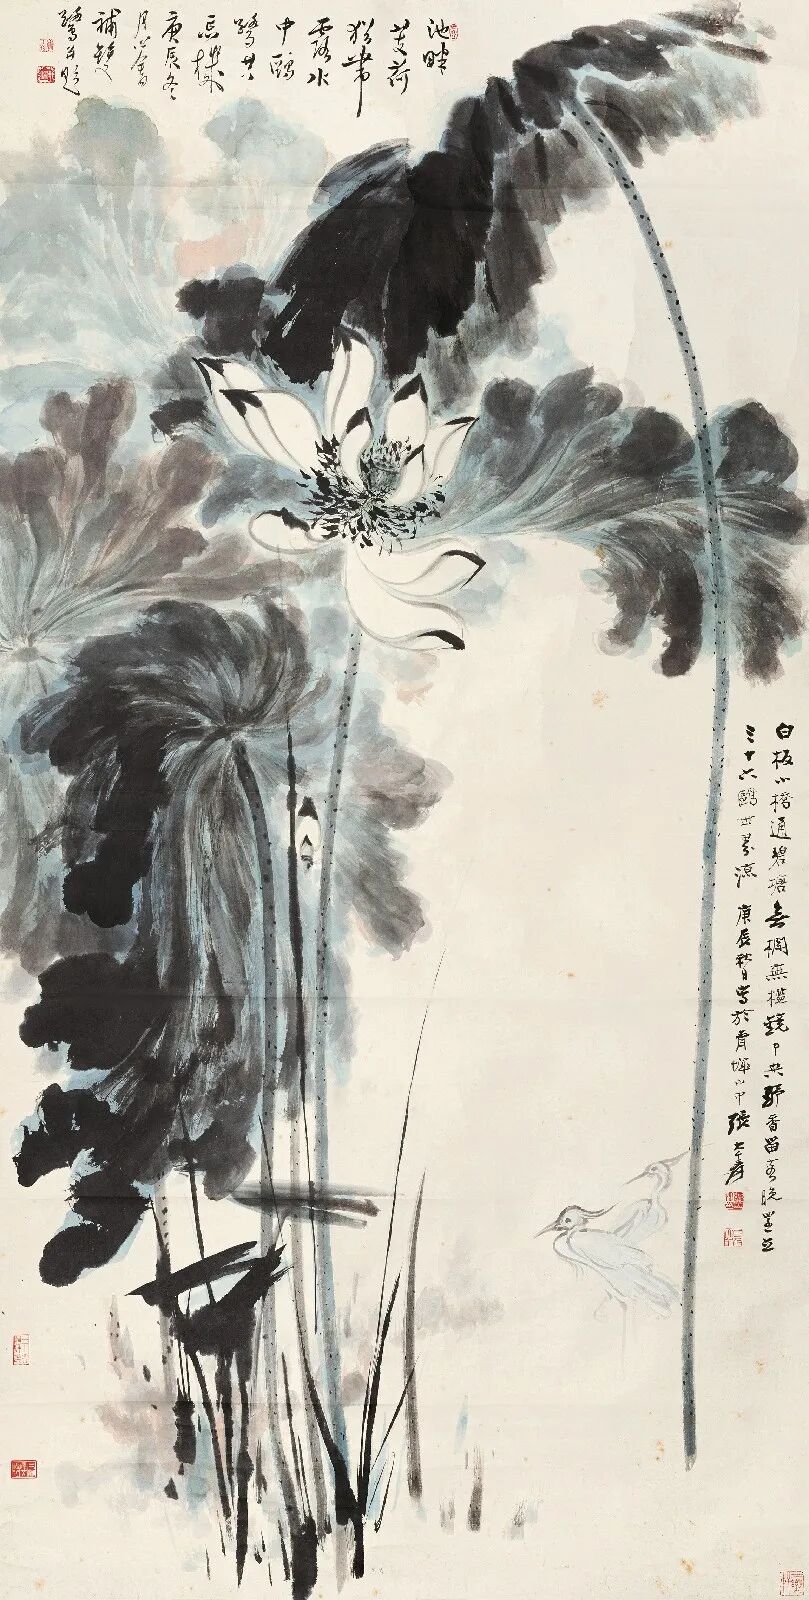 池畔
芰荷
猶帶
露水
中鷗
鷺共
忘機
庚辰冬
月心畬
補雙
鷺并題
白板小橋通碧塘無欄無檻鏡中央野香留客晚還立
三十六鷗世界涼 庚辰秋日寫於青城山中張大千爰